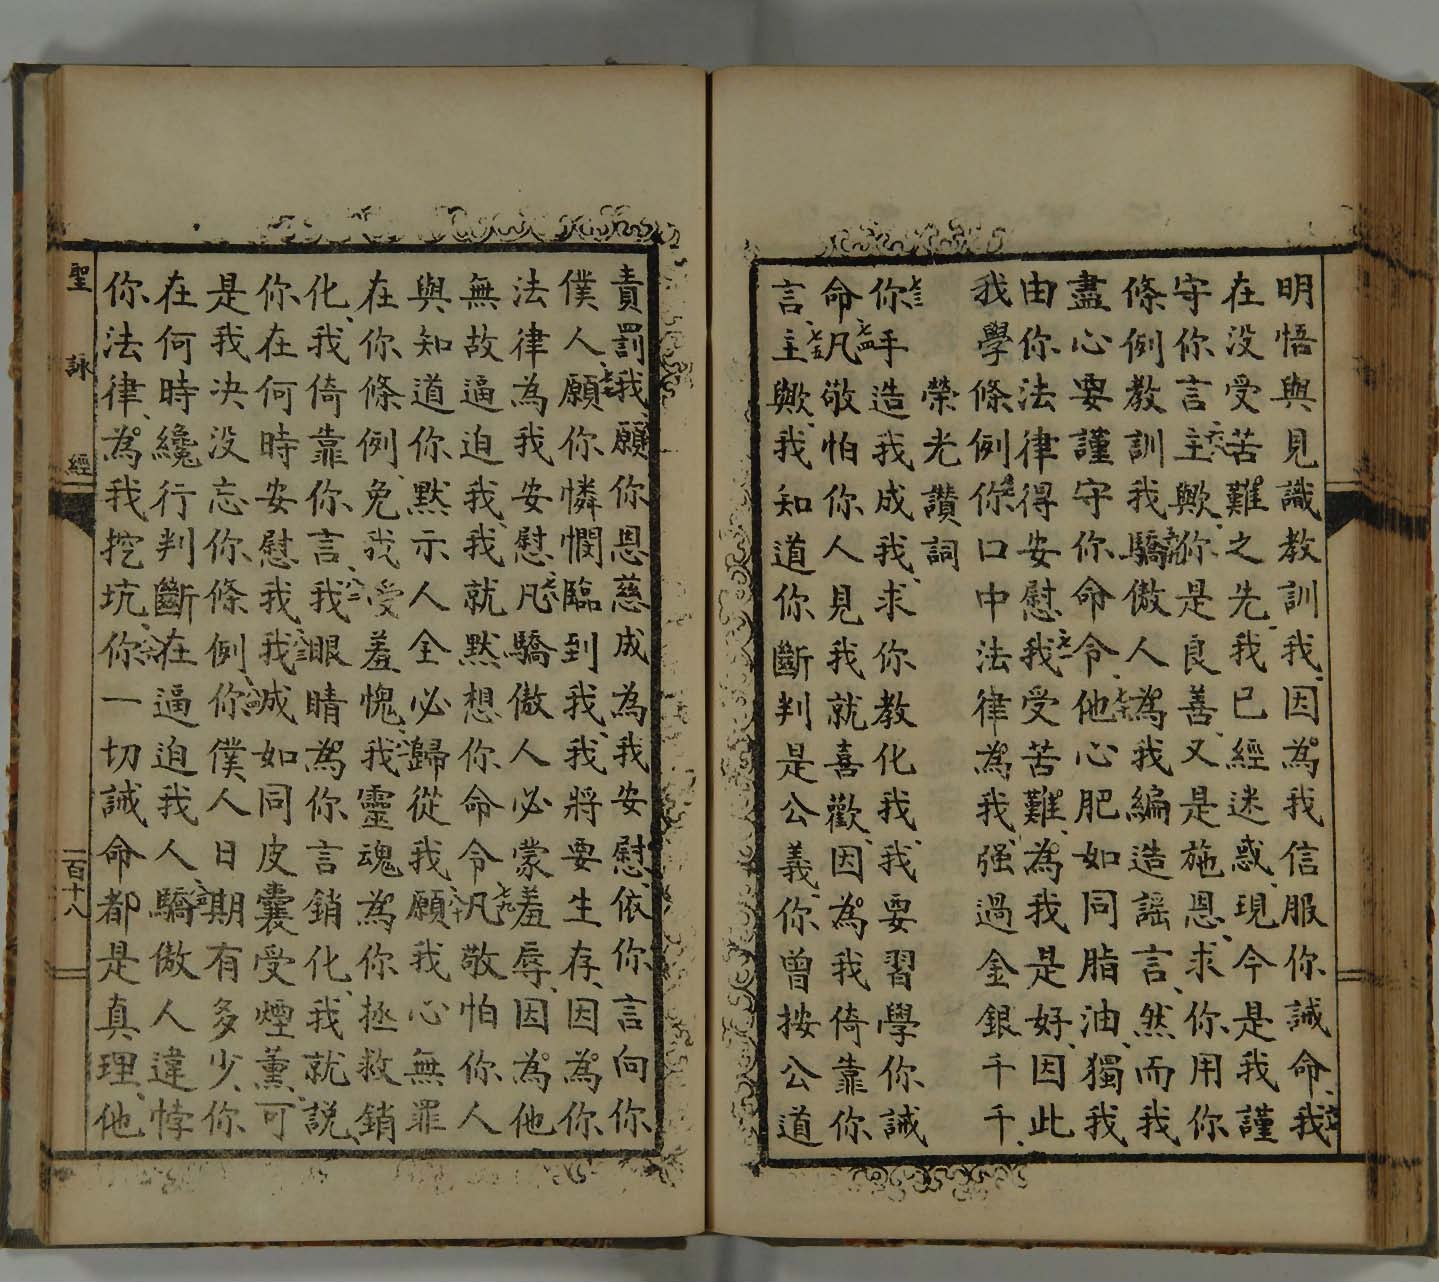 明悟與見識教訓我因為我信服你誡命我
在没受苦難之先我已經迷惑現今是我謹
守你言主歟你是良善又是施恩求你用你
條例教訓我驕傲人為我編造謡言然而我
盡心要謹守你命令他心肥如同脂油獨我
由你法律得安慰我受苦難為我是好因此
我學條例你口中法律為我强過金銀千千
榮光讚詞
你手造我成我求你教化我我要習學你誡
命凡敬怕你人見我就喜歡因為我倚靠你
言主歟我知道你斷判是公義你曾按公道
責罰我願你恩慈成為我安慰依你言向你
僕人願你憐憫臨到我我將要生存因為你
法律為我安慰凡驕傲人必蒙羞辱因為他
無故逼迫我我就默想你命令凡敬怕你人
與知道你默示人全必歸從我願我心無罪
在你條例免我受羞愧我靈魂為你拯救銷
化我倚靠你言我眼睛為你言銷化我就説
你在何時安慰我我成如同皮囊受煙薰可
是我决没忘你條例你僕人日期有多少你
在何時纔行判斷在逼迫我人驕傲人違悖
你法律為我挖坑你一切誡命都是真理他
聖詠經
一百十八